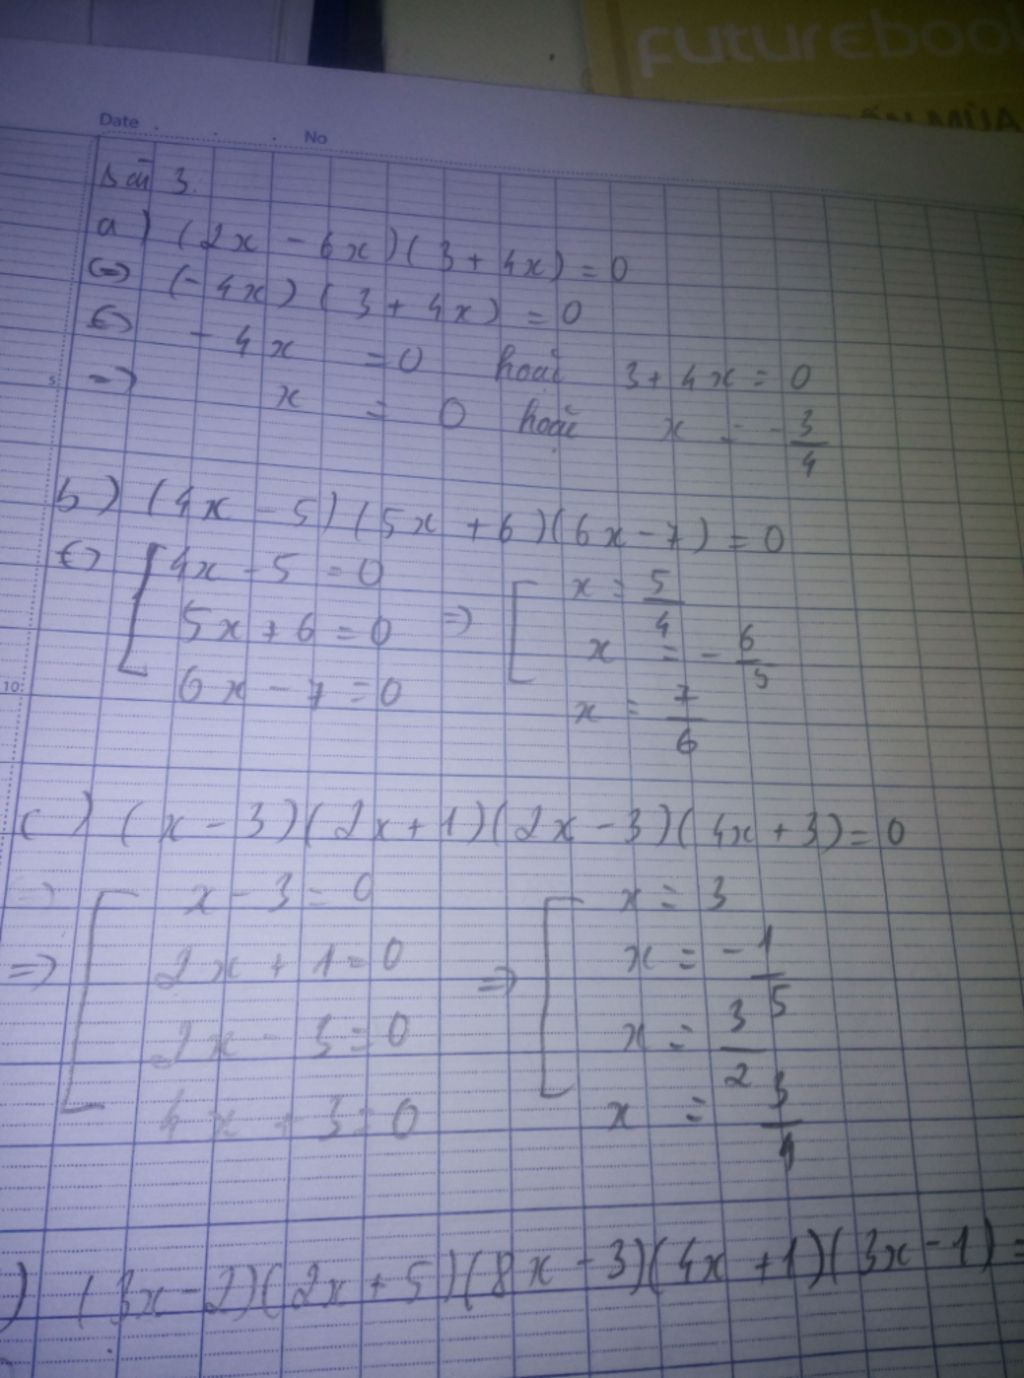 futurebook
ẤN MÙA
Date . . . No
Bài 3.
a) (2x - 6x)(3 + 4x) = 0
<=> (-4x)(3 + 4x) = 0
<=> -4x = 0 hoặc 3 + 4x = 0
=> x = 0 hoặc x = -3/4
b) (4x - 5)(5x + 6)(6x - 7) = 0
<=> [ 4x - 5 = 0
5x + 6 = 0
6x - 7 = 0
=> [ x = 5/4
x = -6/5
x = 7/6
c) (x - 3)(2x + 1)(2x - 3)(4x + 3) = 0
=>
=> [ x - 3 = 0
2x + 1 = 0
2x - 3 = 0
4x + 3 = 0
=> [ x = 3
x = -1/5
x = 3/2
x = 3/4
) (3x - 2)(2x + 5)(8x - 3)(4x + 1)(3x - 1) =
5
10